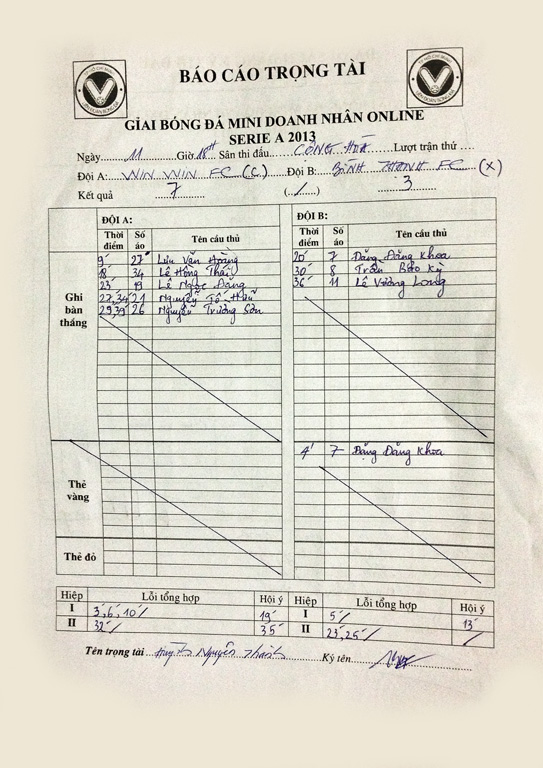 BÁO CÁO TRỌNG TÀI
GIẢI BÓNG ĐÁ MINI DOANH NHÂN ONLINE
SERIE A 2013
Ngày 11 Giờ 18H Sân thi đấu CỘNG HOÀ Lượt trận thứ
Đội A: WIN WIN FC (C) Đội B: BÌNH THẠNH FC (X)
Kết quả 7 (/) 3
ĐỘI A: ĐỘI B:
Thời điểm Số áo Tên cầu thủ Thời điểm Số áo Tên cầu thủ
Ghi bàn thắng
9' 27 Lưu Văn Hoàng 20' 7 Đặng Đăng Khoa
18' 34 Lê Hồng Thái 30' 8 Trần Bảo Kỳ
23' 19 Lê Ngọc Đăng 36' 11 Lê Vương Long
27,34' 21 Nguyễn Tố Hữu
29,39' 26 Nguyễn Trường Sơn
Thẻ vàng
4' 7 Đặng Đăng Khoa
Thẻ đỏ
Hiệp Lỗi tổng hợp Hội ý Hiệp Lỗi tổng hợp Hội ý
I 3,6,10' 19' I 5' 13'
II 32' 35' II 23,25' /
Tên trọng tài Huỳnh Nguyên Thành Ký tên